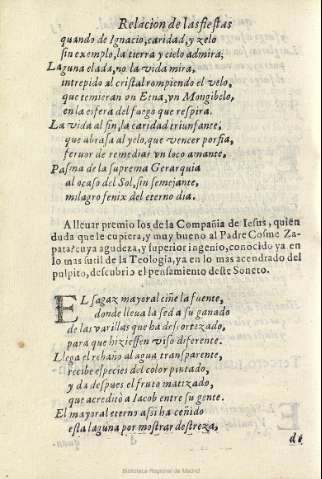 Relacion de las fiestas
quando de Ignacio, caridad, y zelo
sin exemplo, la tierra y cielo admira,
Laguna elada, no la vida mira,
intrepido al cristal rompiendo el velo,
que temieran vn Etna, vn Mongibelo,
en la esfera del fuego que respira.
La vida al fin, la caridad triunfante,
que abrasa al yelo, que vencer porfia,
feruor de remediar vn loco amante,
Pasma de la suprema Gerarquia
al ocaso del Sol, sin semejante,
milagro fenix del eterno dia.
A lleuar premio los de la Compañia de Iesus, quien
duda que le cupiera, y muy bueno al Padre Cosme Za-
pata? cuya agudeza, y superior ingenio, conocido ya en
lo mas sutil de la Teologia, ya en lo mas acendrado del
pulpito, descubrio el pensamiento deste Soneto.
EL sagaz mayoral ciñe la fuente,
donde lleua la sed a su ganado
de las varillas que ha descortezado,
para que hiziessen viso diferente.
Llega el rebaño al agua transparente,
recibe especies del color pintado,
y da despues el fruto matizado,
que acredito a Iacob entre su gente.
El mayoral eterno assi ha ceñido
esta laguna por mostrar destreza,
de
Biblioteca Regional de Madrid